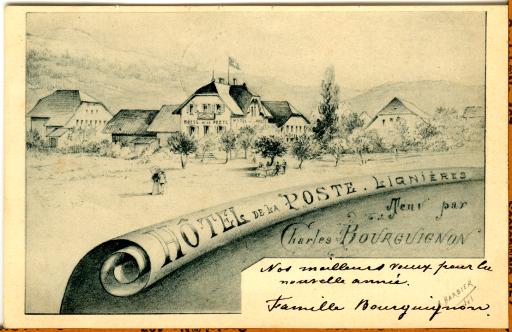 HÔTEL DE LA POSTE
HÔTEL DE LA POSTE. LIGNIÈRES
Tenu par
Charles BOURGUIGNON
Nos meilleurs vœux pour la
nouvelle année.
Famille Bourguignon.
BARBIER